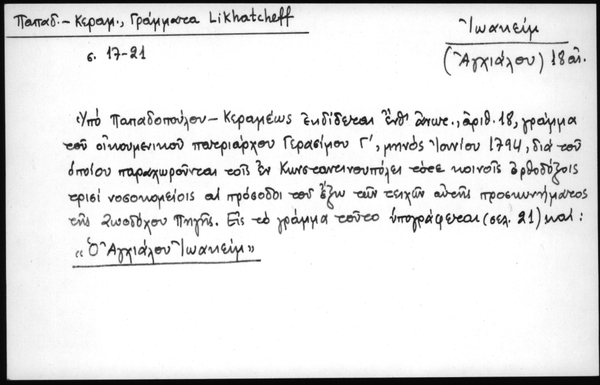 Παπαδ.-Κεραμ., Γράμματα Likhatcheff
σ. 17-21
Ἰωακεὶμ
(Ἀγχιάλου) 18 αἰ.
Ὑπὸ Παπαδοπούλου-Κεραμέως ἐκδίδεται ἔνθ' ἀνωτ., ἀριθ. 18, γράμμα
τοῦ οἰκουμενικοῦ πατριάρχου Γερασίμου Γ', μηνὸς Ἰουνίου 1794, διὰ τοῦ
ὁποίου παραχωροῦνται τοῖς ἐν Κωνσταντινουπόλει τότε κοινοῖς ὀρθοδόξοις
τρισὶ νοσοκομείοις αἱ πρόσοδοι τοῦ ἔξω τῶν τειχῶν αὐτῆς προσκυνήματος
τῆς Ζωοδόχου Πηγῆς. Εἰς τὸ γράμμα τοῦτο ὑπογράφεται (σελ. 21) καὶ:
«Ὁ Ἀγχιάλου Ἰωακεὶμ»